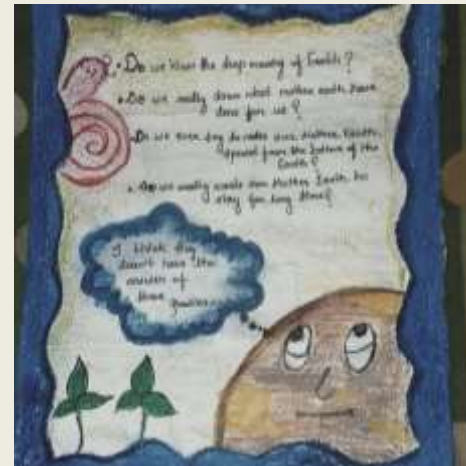 • Do we know the deep meaning of Earth?
• Do we really know what mother earth have
done for us?
• Do we ever try to make our Mother Earth
special from the bottom of the
Earth?
• Do we really want our Mother Earth to
stay for long time?
I think they
doesn't have the
answer of
these